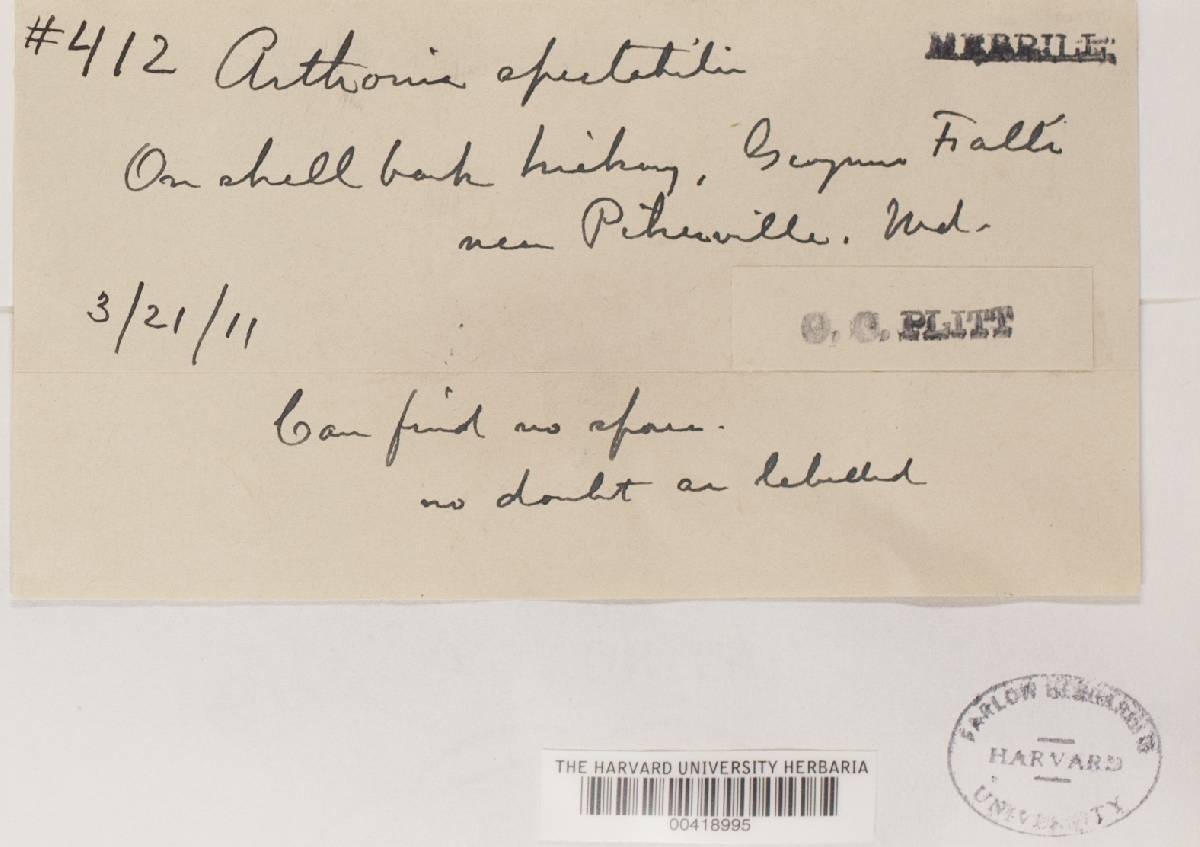 #412 Arthonia spectabilis
MERRILL.
On shell bark hickory, Gwynns Falls
near Pikesville. Md.
3/21/11
C. C. PLITT
Can find no spores.
no doubt as labelled
FARLOW HERBARIUM
HARVARD
UNIVERSITY
THE HARVARD UNIVERSITY HERBARIA
00418995